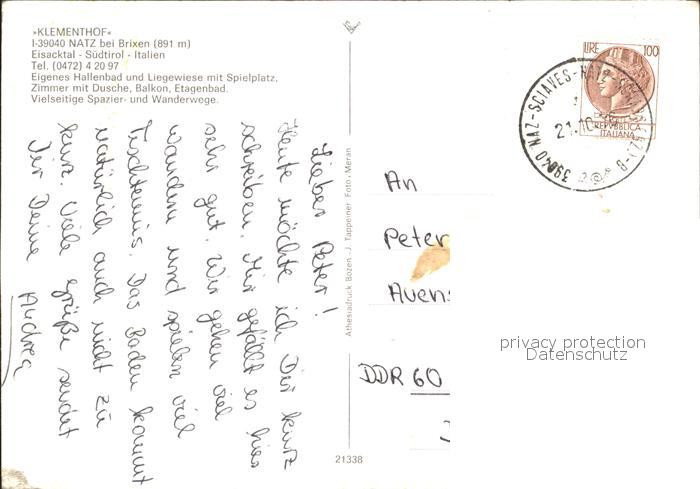 »KLEMENTHOF«
I-39040 NATZ bei Brixen (891 m)
Eisacktal - Südtirol - Italien
Tel. (0472) 4 20 97
Eigenes Hallenbad und Liegewiese mit Spielplatz.
Zimmer mit Dusche, Balkon, Etagenbad.
Vielseitige Spazier- und Wanderwege.
Lieber Peter!
Heute möchte ich Dir kurz
schreiben. Mir gefällt es hier
sehr gut. Wir gehen viel
wandern und spielen viel
Tischtennis. Das Baden kommt
natürlich auch nicht zu
kurz. Viele Grüße sendet
Dir Deine
Andrea
Athesiadruck Bozen - J. Tappeiner Foto - Meran
21338
LIRE 100
REPVBBLICA
ITALIANA
39040 NAZ-SCIAVES-NATZ-
(BZ)-B
21.10
An
Peter
Auens
DDR 60
privacy protection
Datenschutz